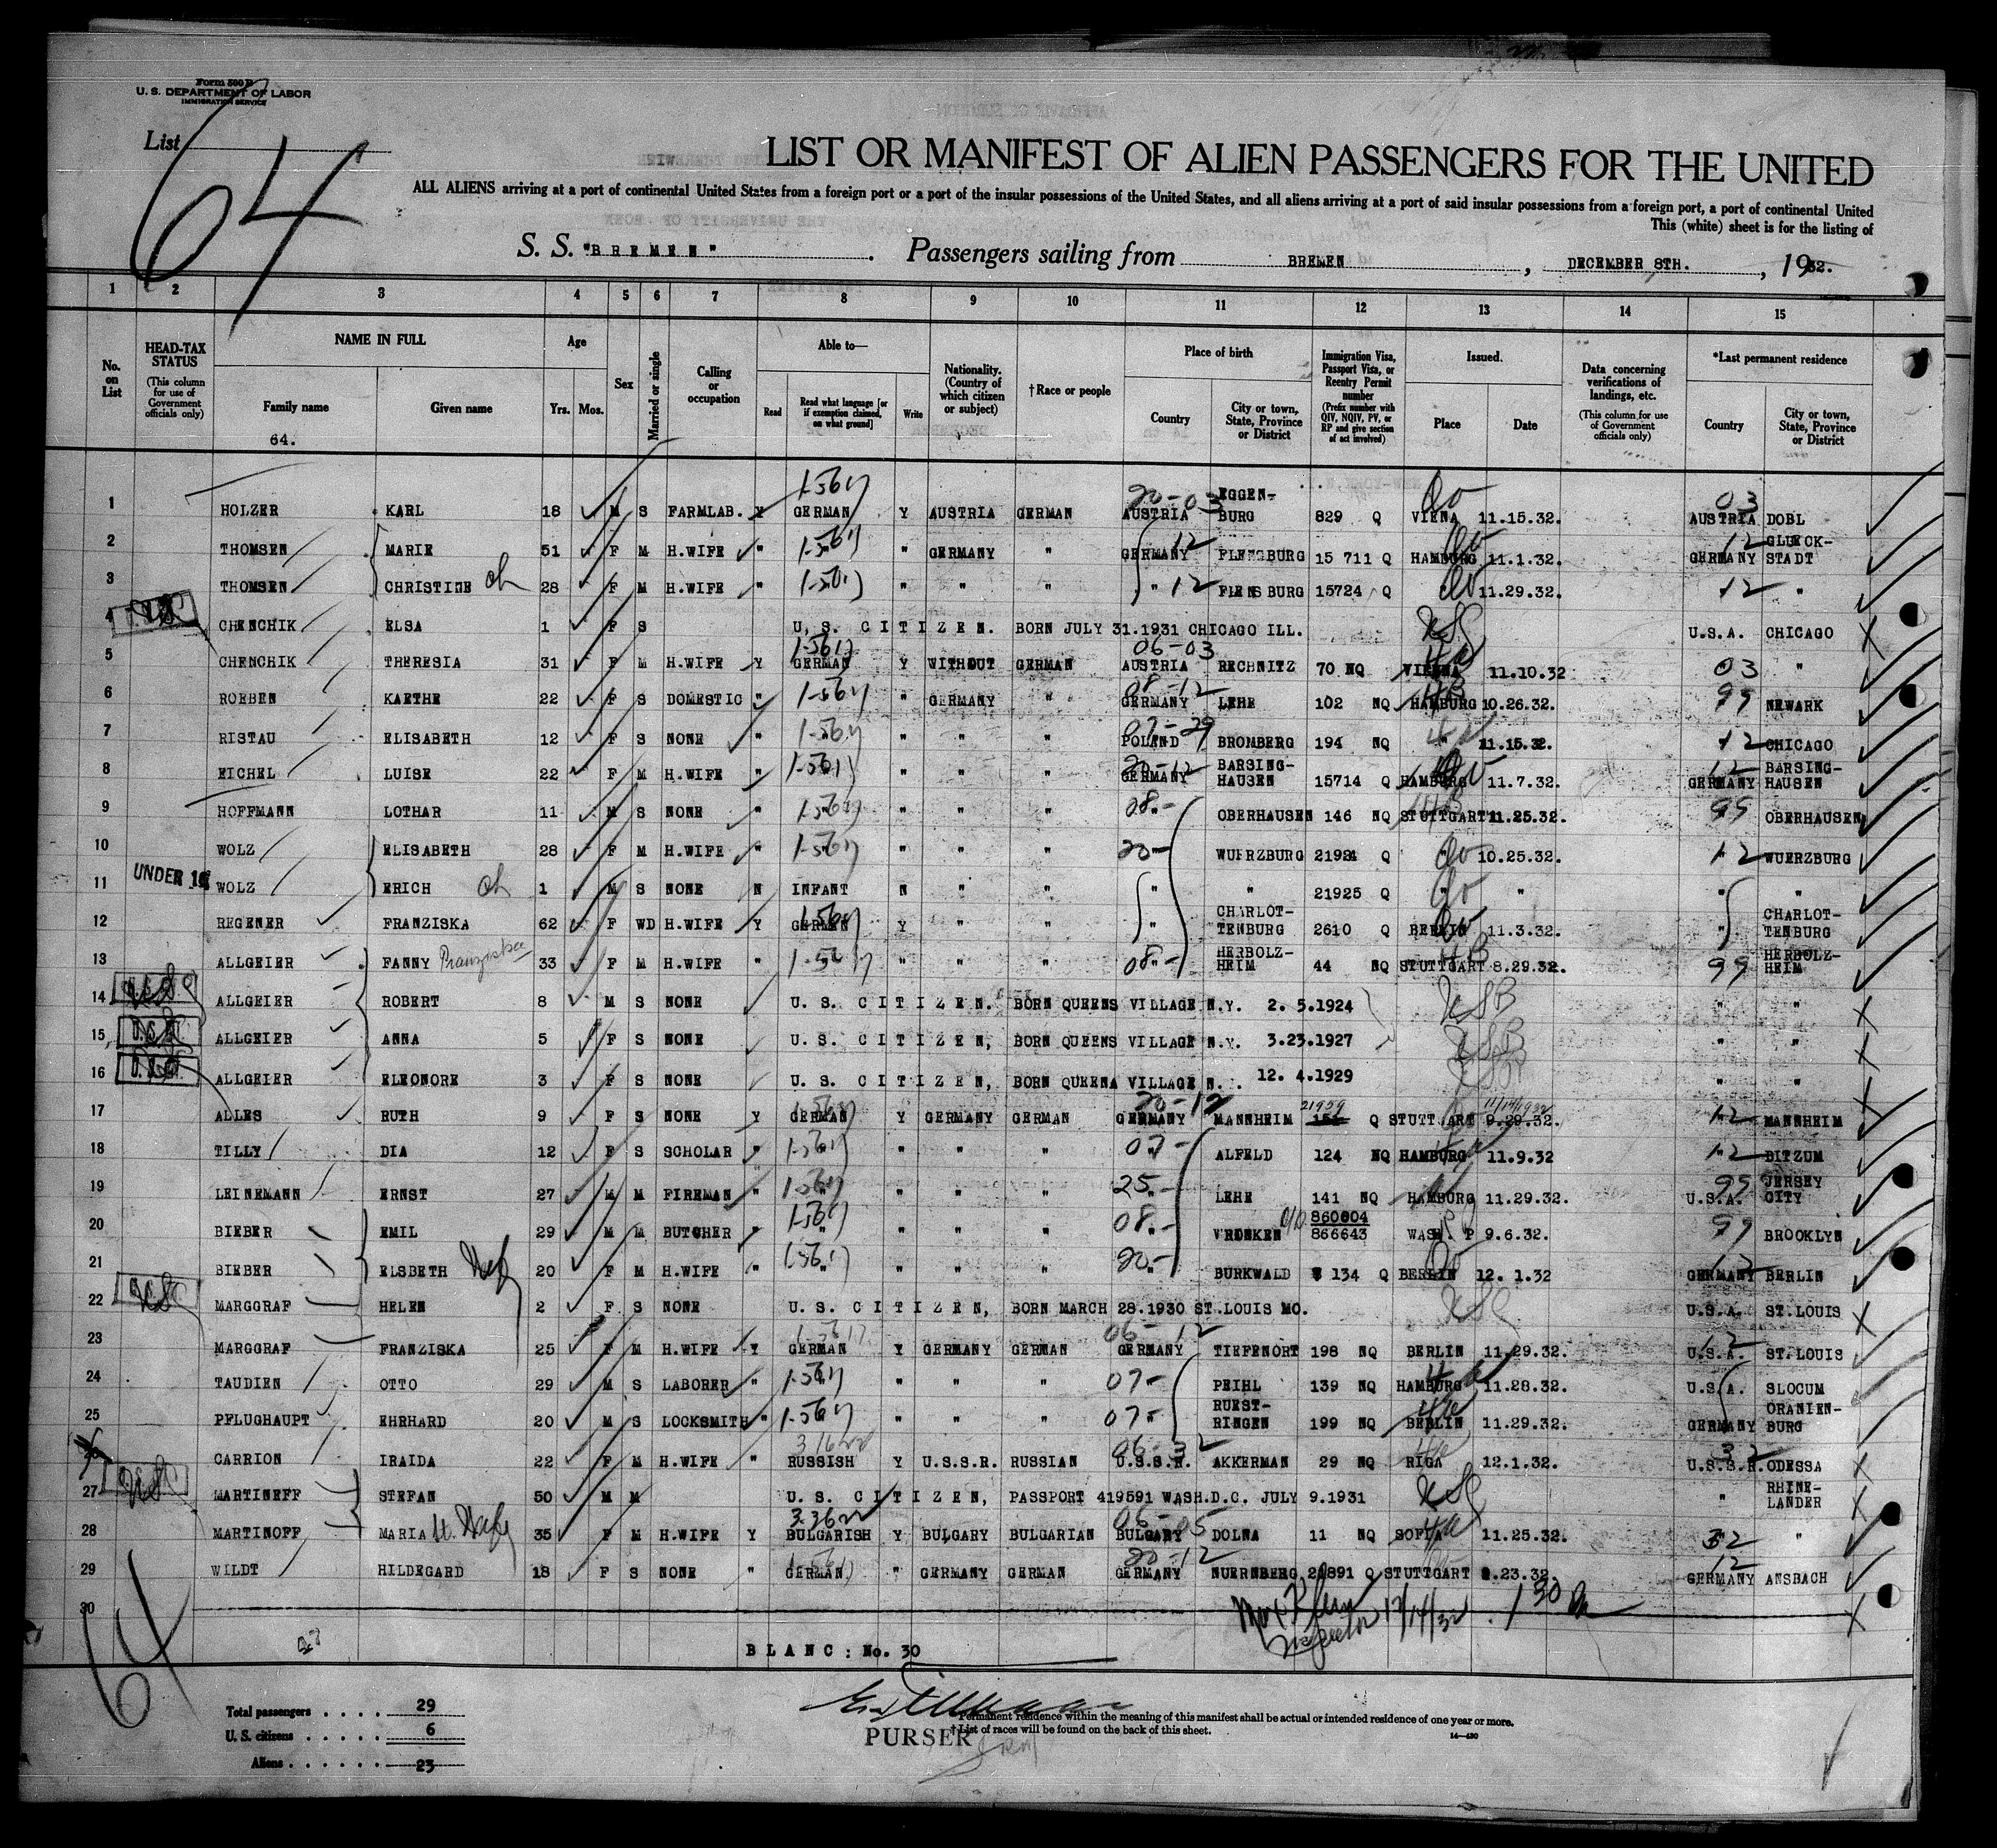 Form 500 B
U. S. DEPARTMENT OF LABOR
IMMIGRATION SERVICE
List
64
LIST OR MANIFEST OF ALIEN PASSENGERS FOR THE UNITED
ALL ALIENS arriving at a port of continental United States from a foreign port or a port of the insular possessions of the United States, and all aliens arriving at a port of said insular possessions from a foreign port, a port of continental United
This (white) sheet is for the listing of
S. S. "BREMEN". Passengers sailing from BREMEN, DECEMBER 8TH., 1932.
1 2 3 4 5 6 7 8 9 10 11 12 13 14 15
No. on List
HEAD-TAX STATUS (This column for use of Government officials only)
NAME IN FULL
Family name
Given name
64.
Age
Yrs. Mos.
Sex
Married or single
Calling or occupation
Able to—
Read
Read what language [or if exemption claimed, on what ground]
Write
Nationality. (Country of which citizen or subject)
†Race or people
Place of birth
Country
City or town, State, Province or District
Immigration Visa, Passport Visa, or Reentry Permit number (Prefix number with QIV, NQIV, PV, or RP and give section of act involved)
Issued.
Place
Date
Data concerning verifications of landings, etc. (This column for use of Government officials only)
*Last permanent residence
Country
City or town, State, Province or District
1 HOLZER KARL 18 M S FARMLAB. Y GERMAN Y AUSTRIA GERMAN 20-03 AUSTRIA EGGEN-BURG 829 Q VIENA 11.15.32. 03 AUSTRIA DOBL
2 THOMSEN MARIE 51 F M H.WIFE " " " GERMANY " GERMANY 12 FLENSBURG 15 711 Q HAMBURG 11.1.32. 12 GERMANY GLUECK-STADT
3 THOMSEN CHRISTINE 28 F M H.WIFE " " " " " 12 FLENSBURG 15724 Q 11.29.32. 12 "
4 CHENCHIK ELSA 1 F S U. S. CITIZEN. BORN JULY 31.1931 CHICAGO ILL. USC U.S.A. CHICAGO
5 CHENCHIK THERESIA 31 F M H.WIFE Y GERMAN Y WITHOUT GERMAN 06-03 AUSTRIA RECHNITZ 70 NQ VIENNA 11.10.32 03 "
6 ROEBEN KAETHE 22 F S DOMESTIC " " GERMANY " 08-12 GERMANY LEHE 102 NQ HAMBURG 10.26.32. 99 NEWARK
7 RISTAU ELISABETH 12 F S NONE " " " " POLAND BROMBERG 194 NQ " 11.15.32. 12 CHICAGO
8 EICHEL LUISE 22 F M H.WIFE " " " " 20-12 GERMANY BARSING-HAUSEN 15714 Q HAMBURG 11.7.32. 12 GERMANY BARSING-HAUSEN
9 HOFFMANN LOTHAR 11 M S NONE " " " " " 08- OBERHAUSEN 146 NQ STUTTGART 11.25.32. 99 OBERHAUSEN
10 WOLZ ELISABETH 28 F M H.WIFE " " " " 20- WUERZBURG 21924 Q " 10.25.32. 12 WUERZBURG
UNDER 16
11 WOLZ ERICH 1 M S NONE N INFANT N " " " " 21925 Q " " "
12 REGENER FRANZISKA 62 F WD H.WIFE Y GERMAN Y " " " CHARLOT-TENBURG 2610 Q BERLIN 11.3.32. " CHARLOT-TENBURG
13 ALLGEIER FANNY Franziska 33 F M H.WIFE " " " " 08- HERBOLZ-HEIM 44 NQ STUTTGART 8.29.32. 99 HERBOLZ-HEIM
14 ALLGEIER ROBERT 8 M S NONE U. S. CITIZEN. BORN QUEENS VILLAGE N.Y. 2. 5.1924 " "
15 ALLGEIER ANNA 5 F S NONE U. S. CITIZEN, BORN QUEENS VILLAGE N.Y. 3.23.1927 " "
16 ALLGEIER ELEONORE 3 F S NONE U. S. CITIZEN, BORN QUEENA VILLAGE N.. 12. 4.1929 " "
17 ALLES RUTH 9 F S NONE Y GERMAN Y GERMANY GERMAN 20-12 GERMANY MANNHEIM 21959 Q STUTTGART 11/14/1932 9.29.32. 12 MANNHEIM
18 TILLY DIA 12 F S SCHOLAR " " " " 07- ALFELD 124 NQ HAMBURG 11.9.32 12 BITZUM
19 LEINEMANN ERNST 27 M M FIREMAN " " " " " 25- LEHE 141 NQ HAMBURG 11.29.32. 99 U.S.A. JERSEY CITY
20 BIEBER EMIL 29 M M BUTCHER " " " " " 08- VRONKEN 860604 866643 WASH. P 9.6.32. 99 BROOKLYN
21 BIEBER ELSBETH Wife 20 F M H.WIFE " " " " " 20- BURKWALD 134 Q BERLIN 12. 1.32 12 GERMANY BERLIN
22 MARGGRAF HELEN 2 F S NONE U. S. CITIZEN, BORN MARCH 28.1930 ST.LOUIS MO. USC U.S.A. ST.LOUIS
23 MARGGRAF FRANZISKA 25 F M H.WIFE Y GERMAN Y GERMANY GERMAN 06-12 GERMANY TIEFENORT 198 NQ BERLIN 11.29.32. 12 U.S.A. ST.LOUIS
24 TAUDIEN OTTO 29 M S LABORER " " " " 07- PEIHL 139 NQ HAMBURG 11.28.32. U.S.A. SLOCUM
25 PFLUGHAUPT EHRHARD 20 M S LOCKSMITH " " " " 07- RUEST-RINGEN 199 NQ BERLIN 11.29.32. GERMANY ORANIEN-BURG
CARRION IRAIDA 22 F M H.WIFE " RUSSISH Y U.S.S.R. RUSSIAN 06-32 U.S.S.R. AKKERMAN 29 NQ RIGA 12.1.32. 32 U.S.S.R. ODESSA
27 MARTINEFF STEFAN 50 M M U. S. CITIZEN, PASSPORT 419591 WASH.D.C. JULY 9.1931 USC " RHINE-LANDER
28 MARTINOFF MARIA Wife 35 F M H.WIFE Y BULGARISH Y BULGARY BULGARIAN 06-05 BULGARY DOLNA 11 NQ SOFIA 11.25.32. 32 "
29 WILDT HILDEGARD 18 F S NONE " GERMAN " GERMANY GERMAN 20-12 GERMANY NUERNBERG Q STUTTGART 12 GERMANY ANSBACH
30
Inspector 12/14/32 . 1 30
BLANC: No. 30
64
Total passengers . . . . 29
U. S. citizens . . . . . 6
Aliens . . . . . . 23
PURSER
*Permanent residence within the meaning of this manifest shall be actual or intended residence of one year or more.
†List of races will be found on the back of this sheet.
14—430